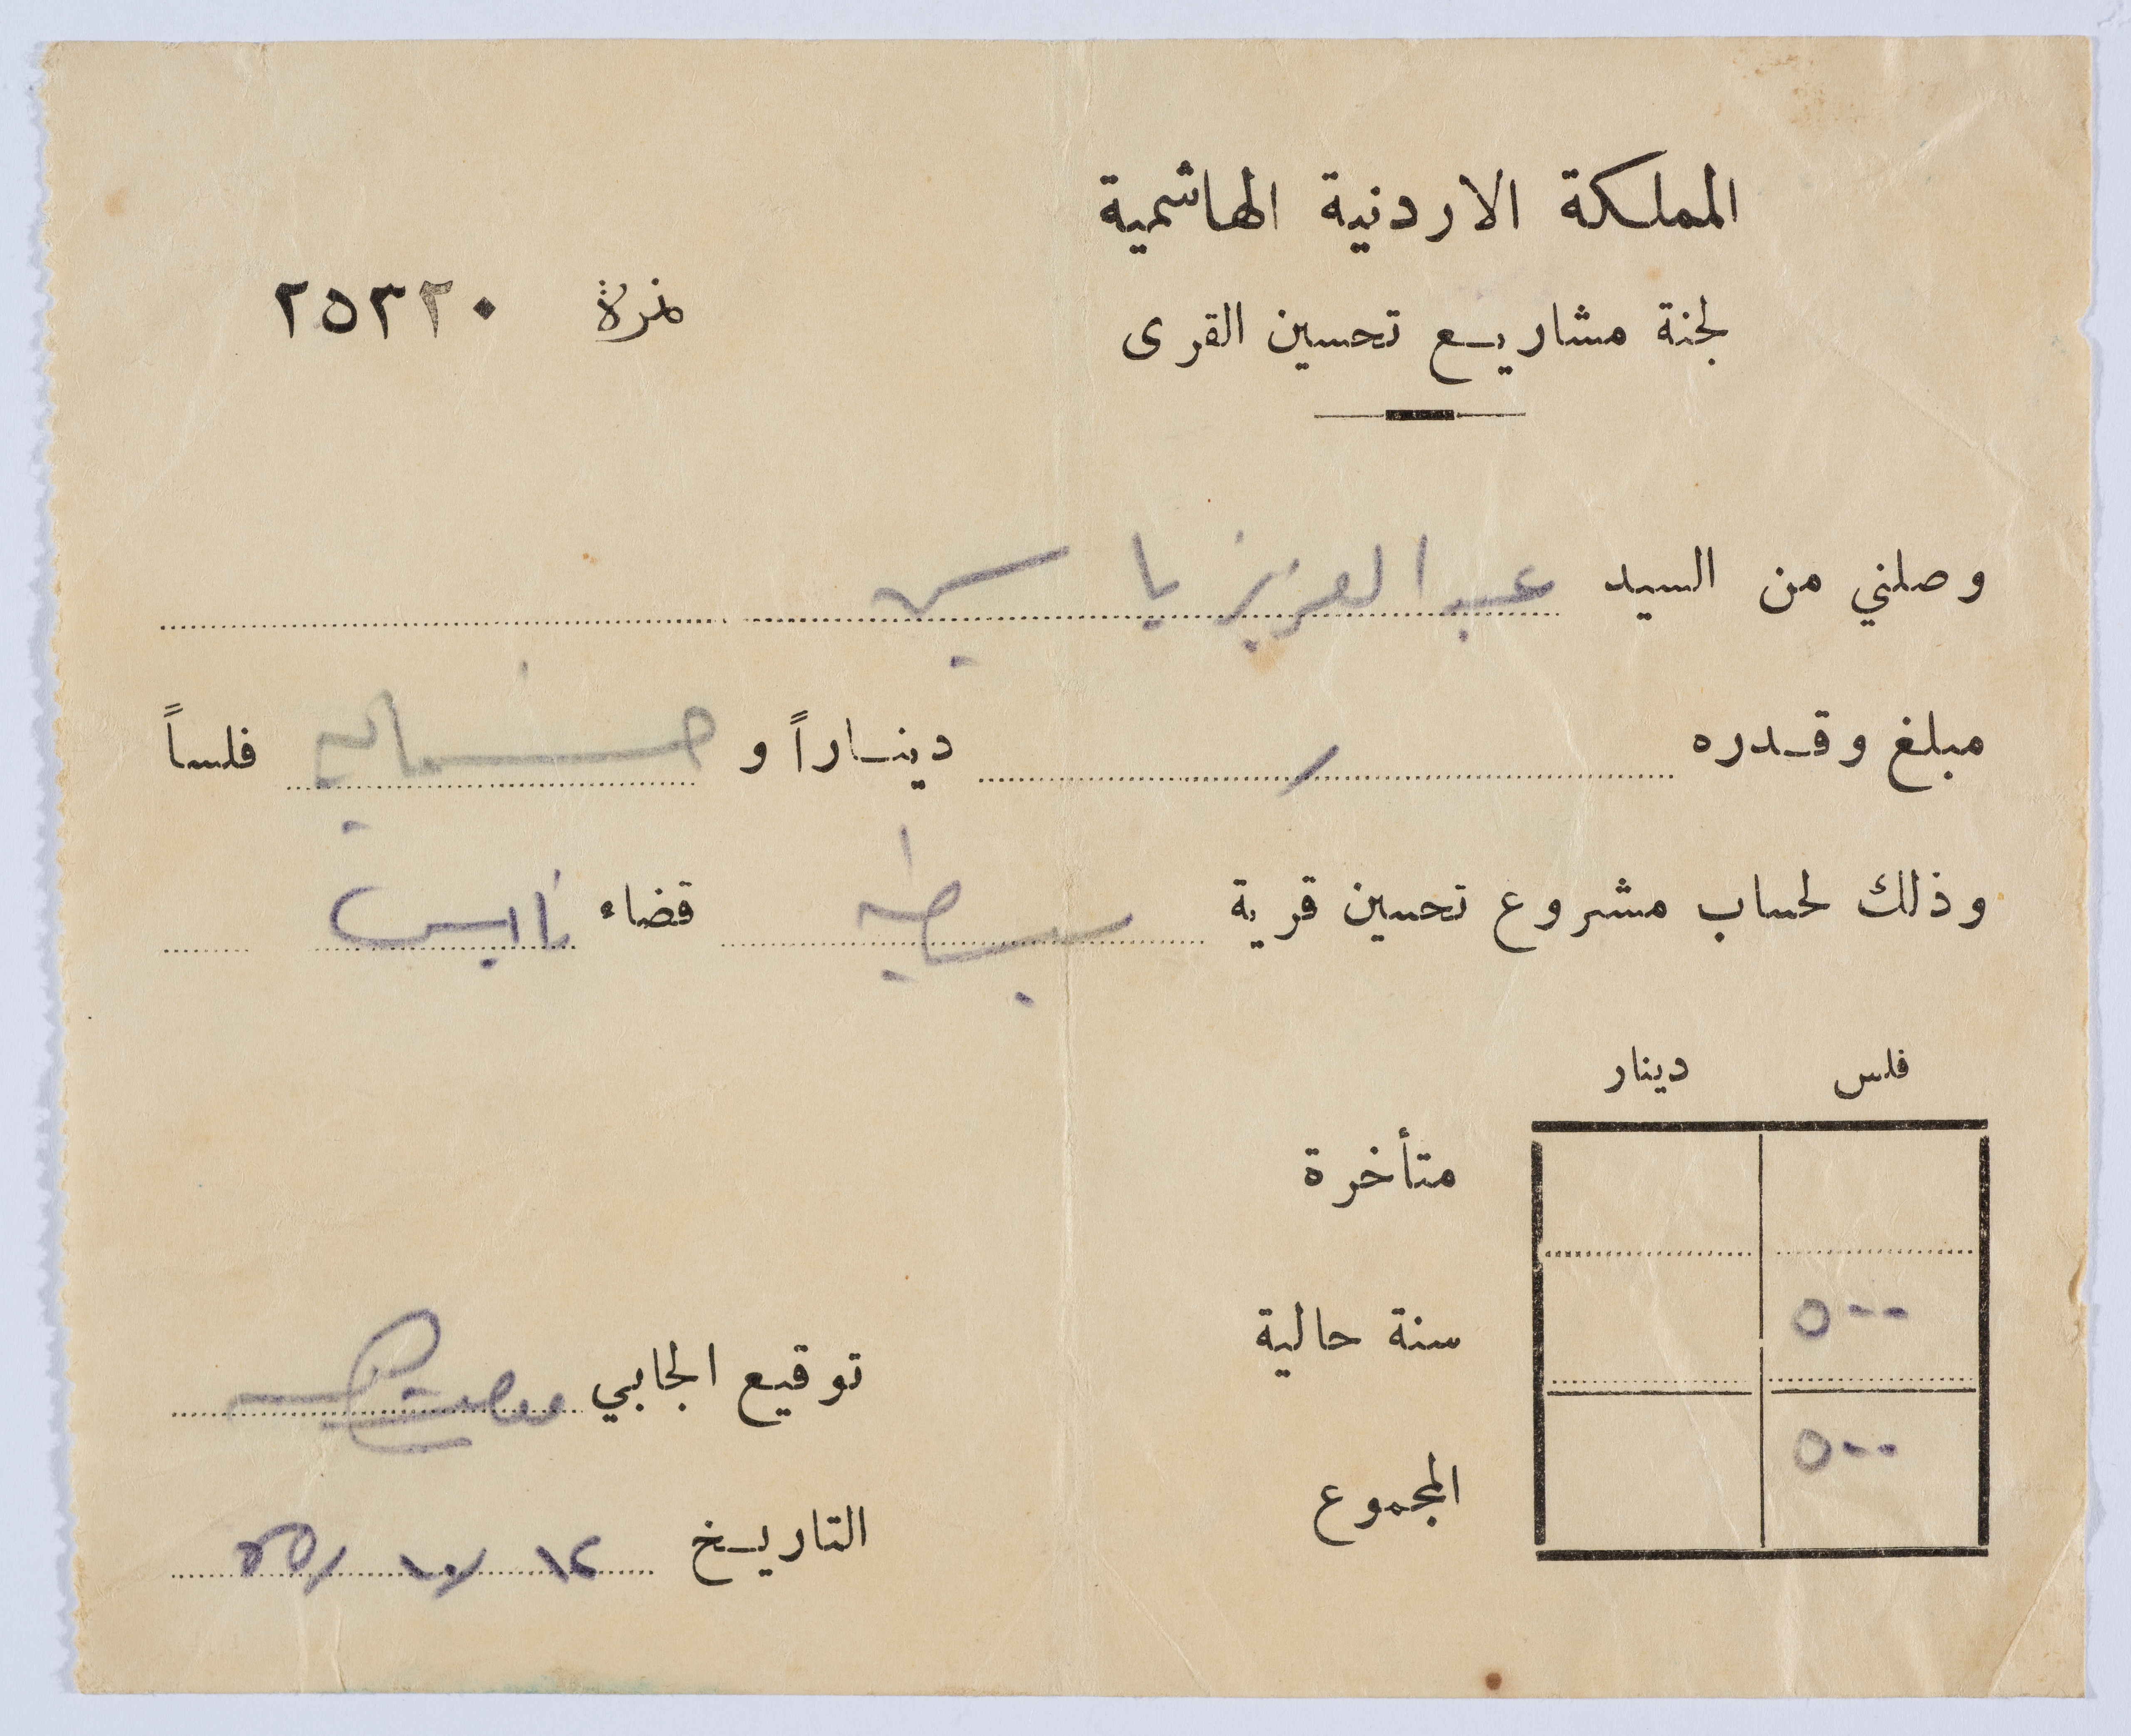 المملكة الاردنية الهاشمية
لجنة مشاريع تحسين القرى
نمرة ٢٥٣٢٠
وصلني من السيد عبد العزيز ياسين
مبلغ وقدره / ديناراً و خمسماية فلساً
وذلك لحساب مشروع تحسين قرية سبسطيه قضاء نابلس
فلس دينار
متأخرة
٥٠٠ سنة حالية
٥٠٠ المجموع
توقيع الجابي
التاريخ ١٢/١٠/٥٥